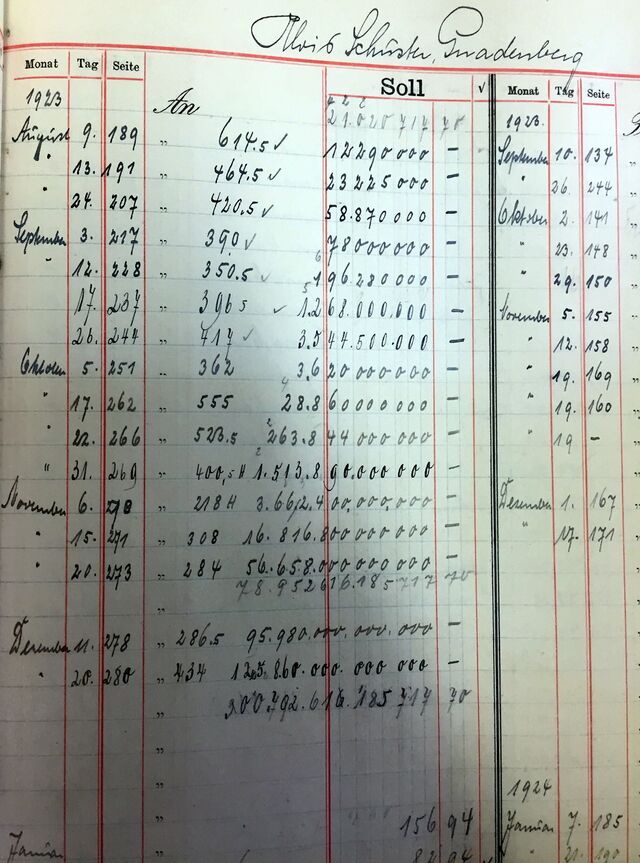 Alois Schuster, Gnadenberg
Monat Tag Seite Soll √ Monat Tag Seite
1923 An 21.020 717 70 1923
August 9. 189 " 614.5 √ 12290000 — September 10. 134
" 13. 191 " 464.5 √ 23225000 — " 26. 244
" 24. 207 " 420.5 √ 58.870000 — Oktober 2. 141
September 3. 217 " 390 √ 78000000 — " 23. 148
" 12. 228 " 350.5 √ 196.280000 — " 29. 150
17. 237 " 396 5 √ 1.268.000.000 — November 5. 155
26. 244 " 717 √ 3.544.500.000 — " 12. 158
Oktober 5. 251 " 362 3.620000000 — " 19. 169
" 17. 262 " 555 28.860000000 — " 19. 160
" 22. 266 " 523.5 263.844000000 — " 19 —
" 31. 269 " 1.513.890.000000 —
November 6. 270 " 218 H 3.662.400.000000 — Dezember 1. 167
" 15. 271 " 308 16.816.800000000 — " 17. 171
" 20. 273 " 284 56.658.000000000 —
78.952616.185717 70
Dezember 11. 278 " 286.5 95.980.000.000.000 —
" 20. 280 " 434 125.860.000.000000 —
300.792.616.185717 70
1924
156 94 Januar 7. 185
Januar 82 94 " 21. 190